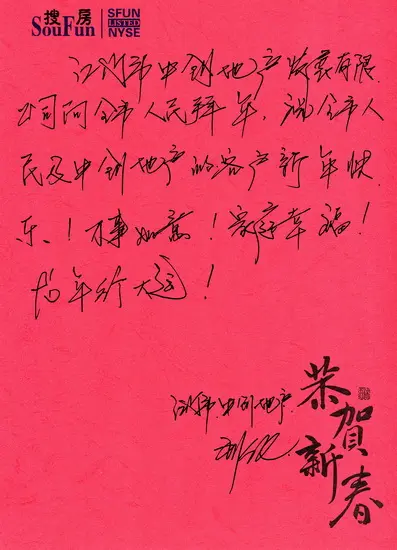 搜房 SFUN
SouFun LISTED
NYSE
江门市中创地产发展有限
公司向全市人民拜年,祝全市人
民及中创地产的客户新年快
乐!万事如意!家庭幸福!
龙年行大运!
江门市中创地产
恭贺
新春